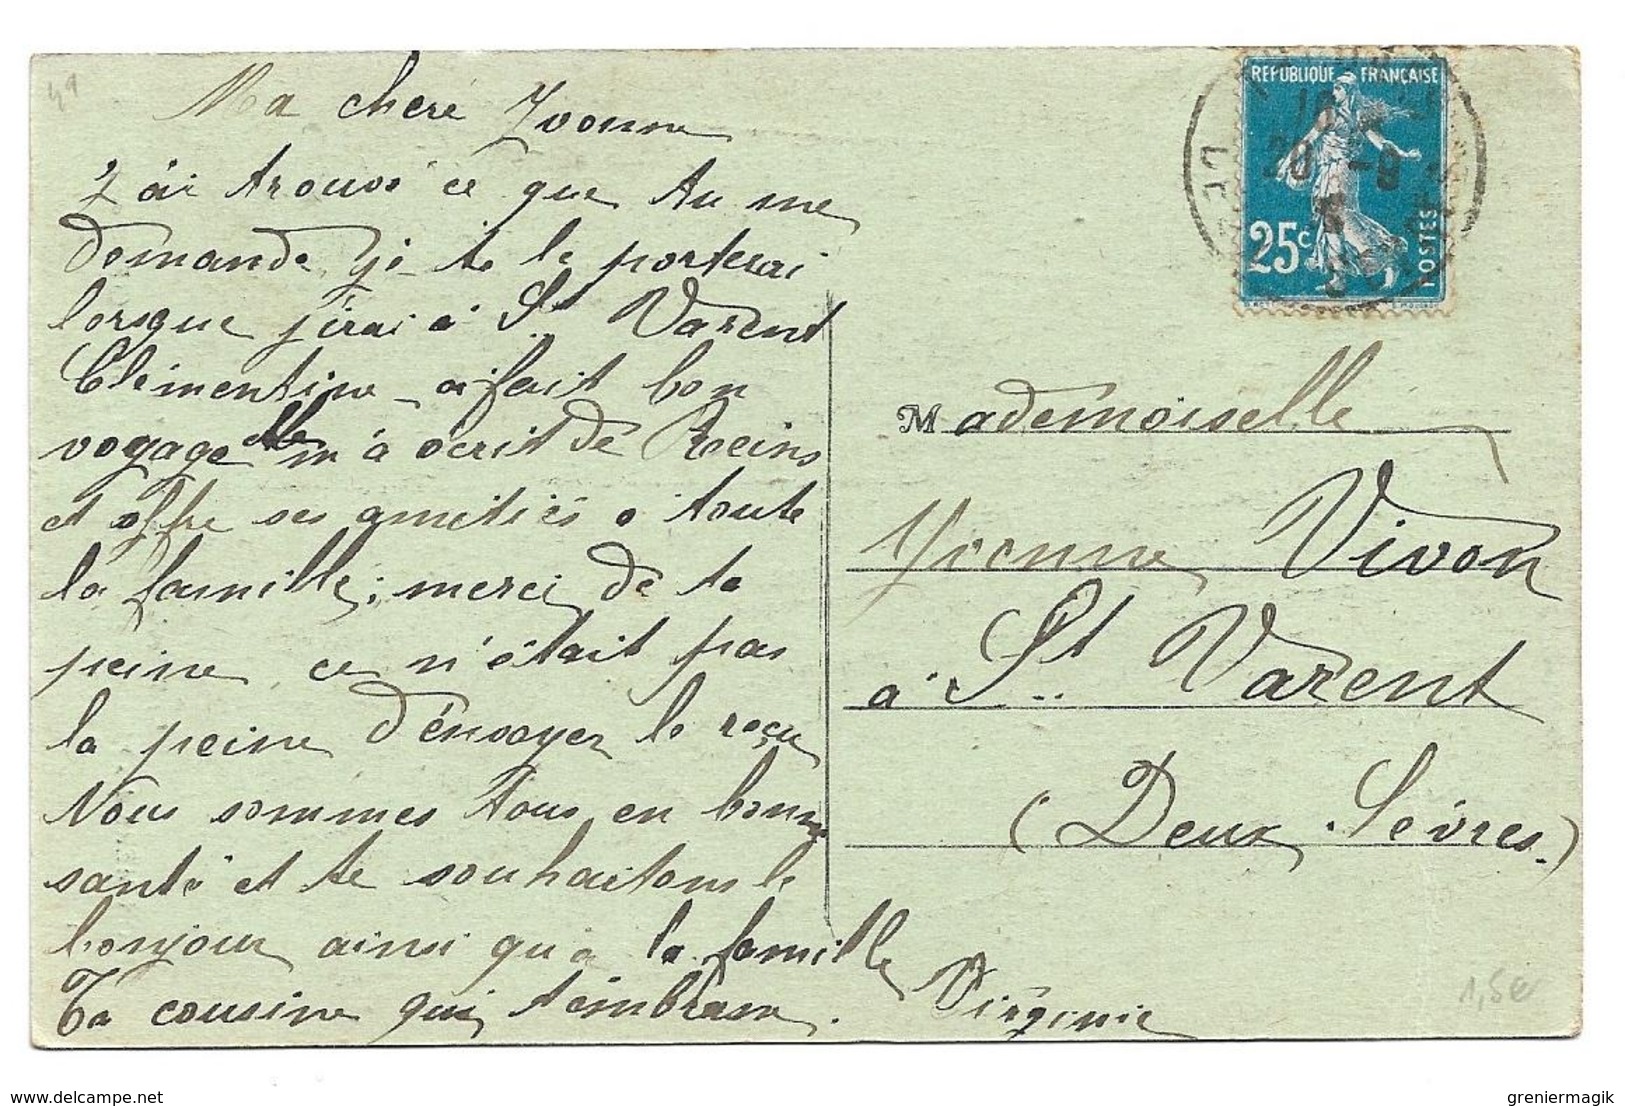 49
Ma cheré Yvonne
J'ai trouvé ce que tu me
demande je te le porterai
lorsque j'irai à St Varent
Clémentine a fait bon
voyage elle m'a écrit de Reins
et offre ses amitiés a toute
la famille ; merci de ta
peine ce n'était pas
la peine d'envoyer le reçu
Nous sommes tous en bonne
santé et te souhaitons le
bonjour ainsi qu'a la famille
Ta cousine qui t'embrasse. Virginie
REPUBLIQUE FRANÇAISE
25c
POSTES
20 -9
Mademoiselle
Yvonne Vivon
à St Varent
(Deux Sèvres.)
1,5€
www.delcampe.net
greniermagik